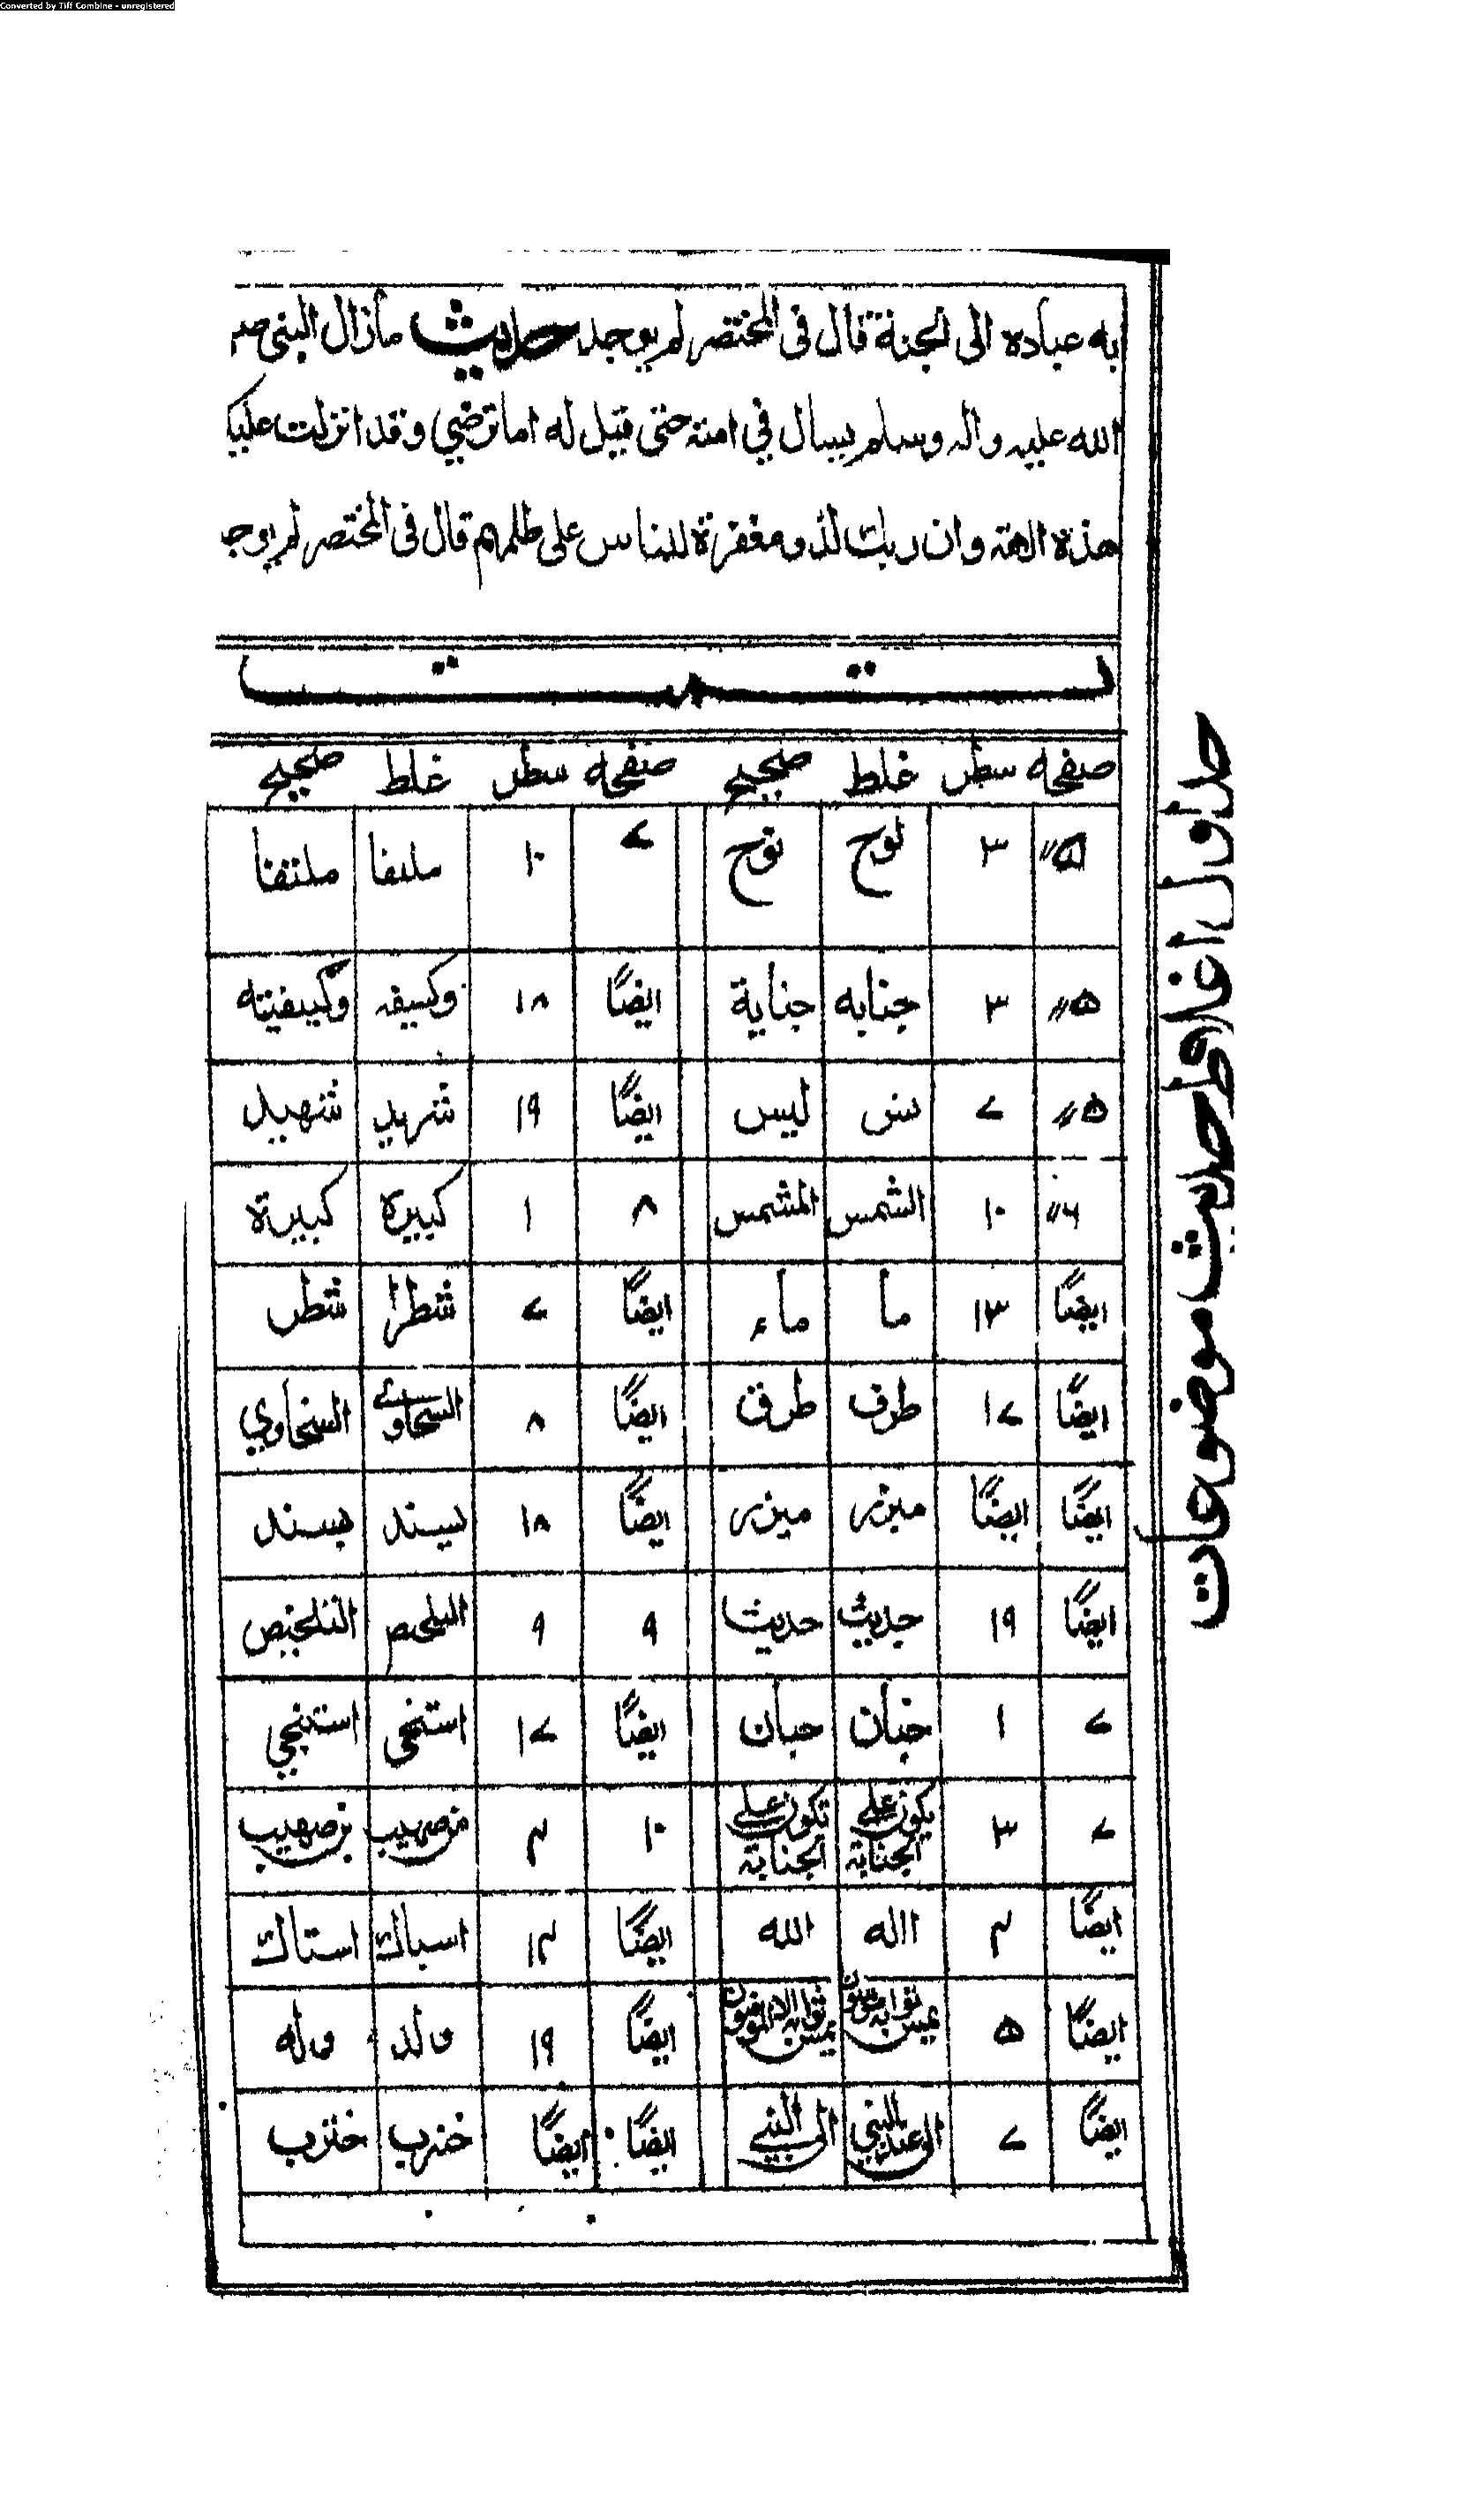 Converted by Tiff Combine - unregistered
به عباده الى الجنة قال فى المختصر لم يوجد حديث مازال النبى صلى
الله عليه واله وسلم يسال في امته حتى قيل له اما ترضي وقد انزلت عليك
هذه الاية وان ربك لذو مغفرة للناس على ظلمهم قال فى المختصر لم يوجد
تمت
جداول اغلاط احاديث موضوعات
صفحه سطر غلط صحيح صفحه سطر غلط صحيح
۵ ۳ لوح نوح ۷ ۱۰ ملتفا ملتفتا
۵ ۳ جنابه جناية ايضًا ۱۸ وكيفه وكيفيته
۵ ۷ ليس ايضًا ۱۹ شهيد شهيد
۶ ۱۰ الشمس المشمس ۸ ۱ كبيره كبيرة
ايضًا ۱۳ ما ماء ايضًا ۷ شطرا شطر
ايضًا ۱۷ طرف طرق ايضًا ۸ السحاوي السخاوي
ايضًا ايضًا ميزر ميزر ايضًا ۱۸ يسند بسند
ايضًا ۱۹ حديث حديث ۹ ۹ الملحص التلخيص
۷ ۱ خبان حبان ايضًا ۱۷ استنحى استنجي
۷ ۳ يكون على الجنابة تكون على الجنابة ۱۰ ۴ من صهيب بن صهيب
ايضًا ۴ االه الله ايضًا ۱۴ اسباك استاك
ايضًا ۵ ايضًا ۱۹ ولد وله
ايضًا ۷ الى عند النبي الى النبي ايضًا ايضًا خنرب خنزب